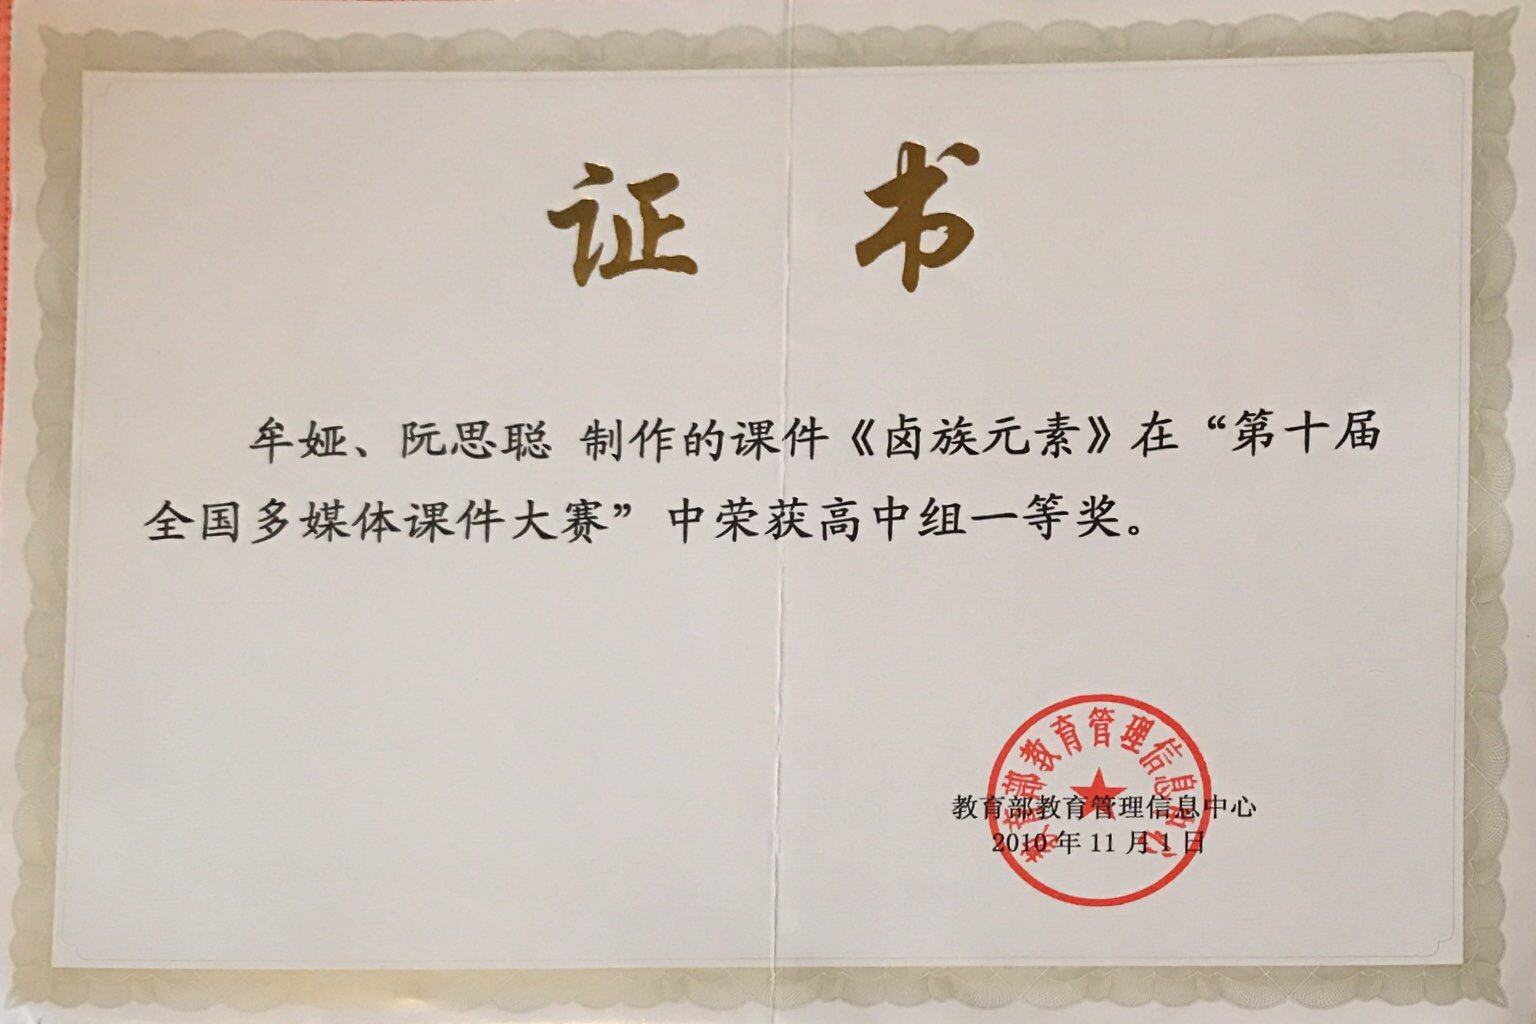 证 书
牟娅、阮思聪 制作的课件《卤族元素》在“第十届
全国多媒体课件大赛”中荣获高中组一等奖。
教育部教育管理信息中心
教育部教育管理信息中心
2010 年 11 月 1 日